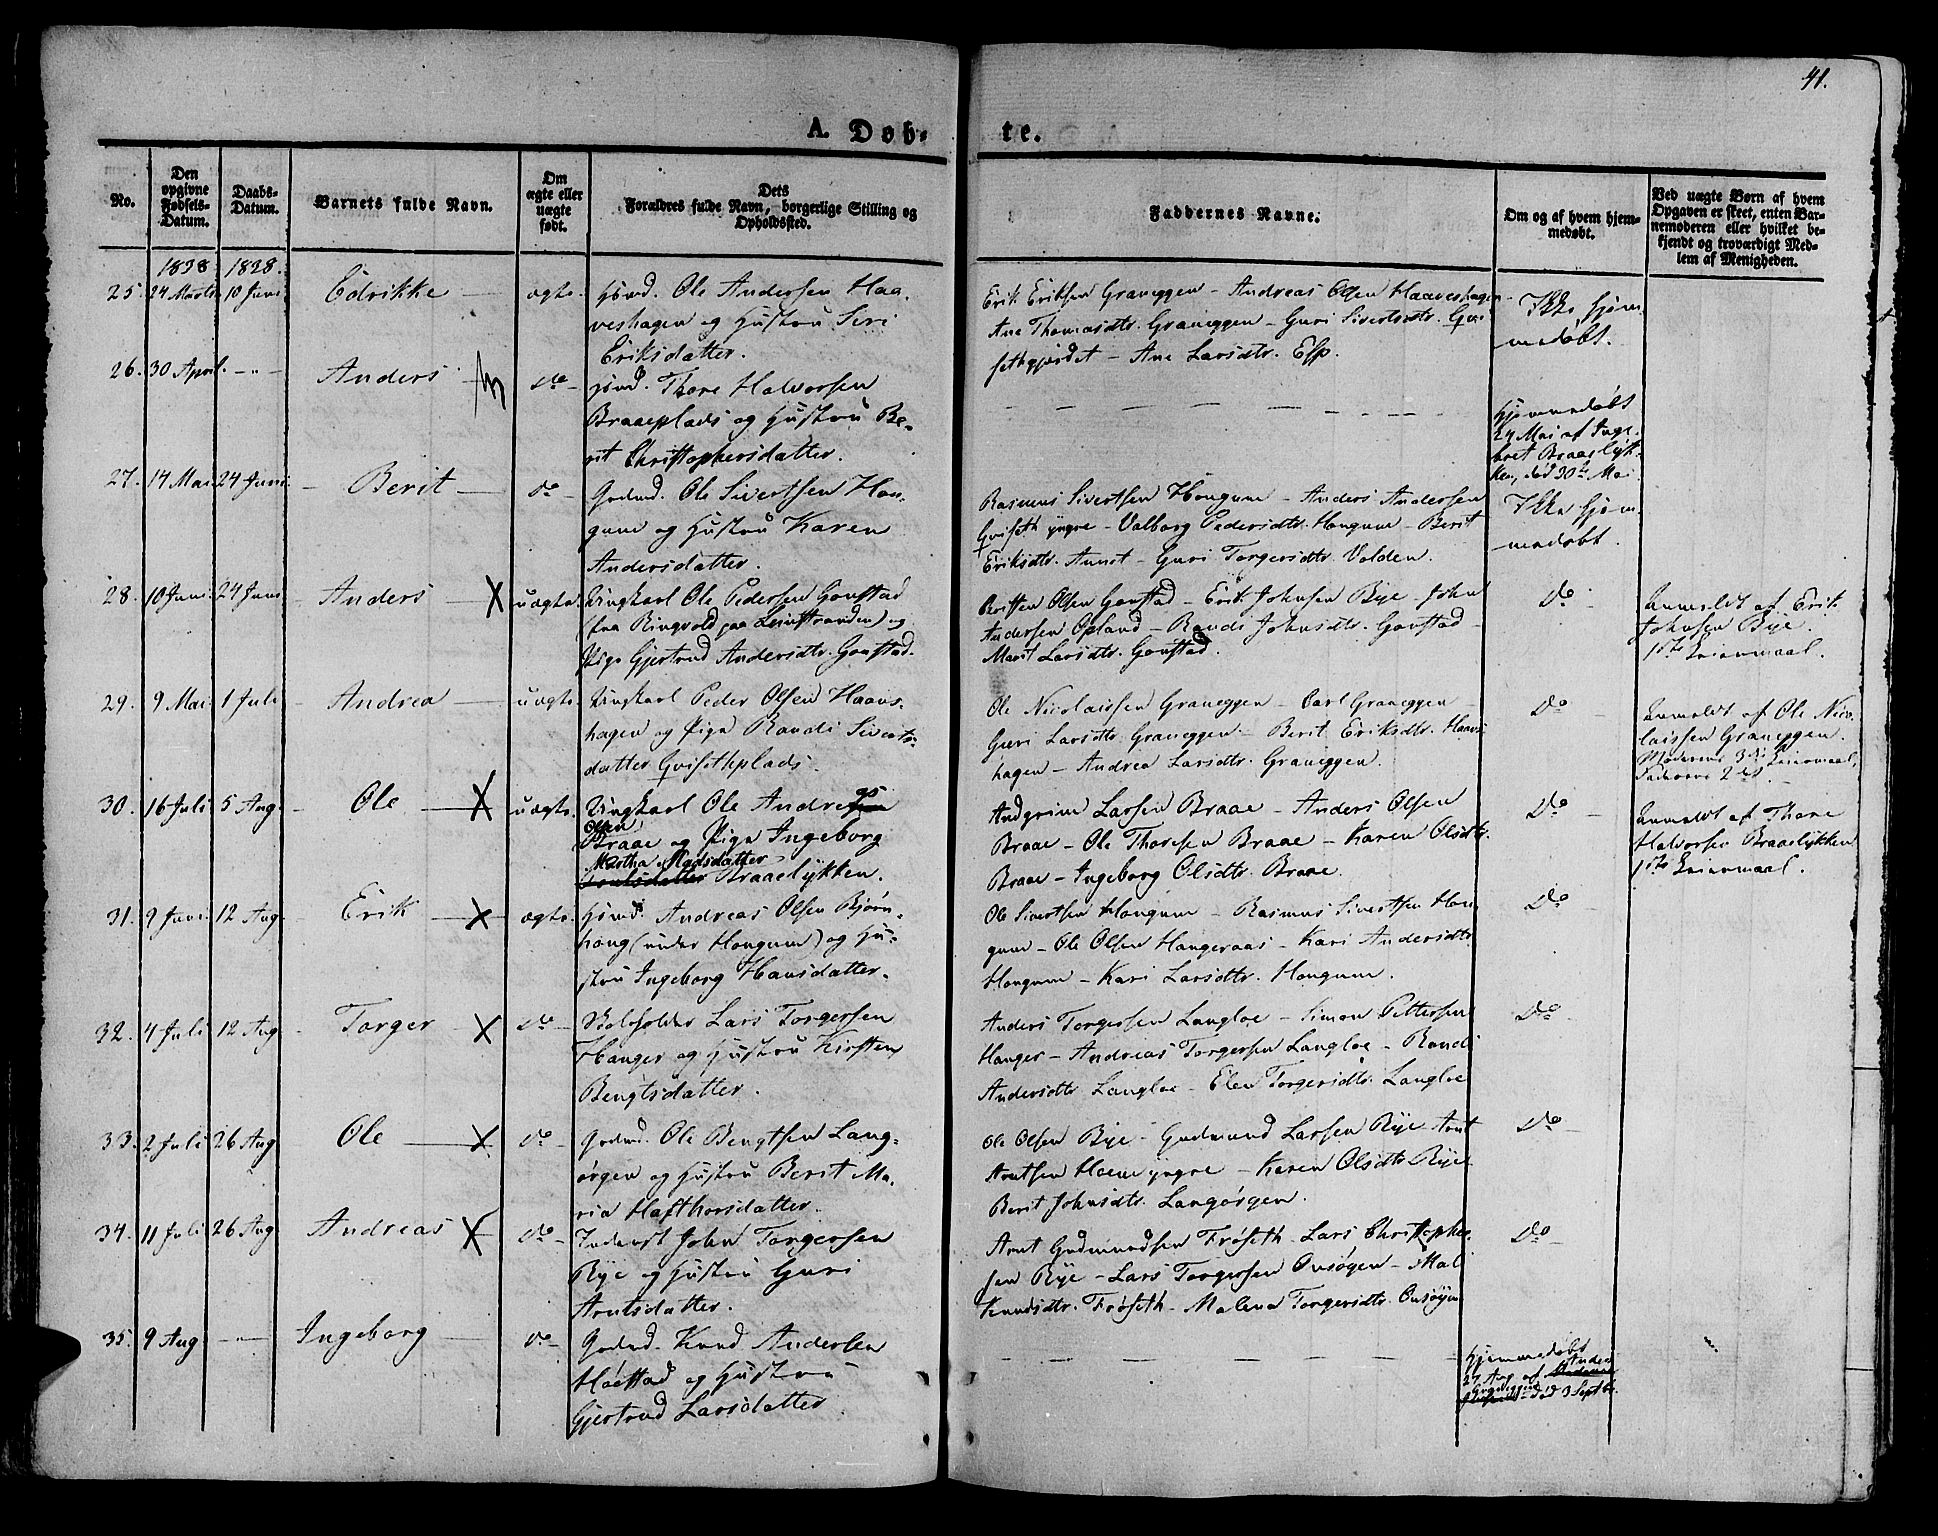 41.
A. Døb-
te.
No.
Den opgivne Fødsels-Datum.
Daabs-Datum.
Barnets fulde Navn.
Om ægte eller uægte født.
Dets Forældres fulde Navn, borgerlige Stilling og Opholdssted.
Faddernes Navne.
Om og af hvem hjemmedøbt.
Ved uægte Børn af hvem
Opgaven er skeet, enten Bar-
nemoderen eller hvilket be-
kjendt og troværdigt Med-
lem af Menigheden.
1838 1838.
25. 24 Marts 10 Juni Edrikke ægte.
Huusmd. Ole Andersen Haa-
veshagen og Hustru Siri
Eriksdatter.
Erik Eriksen Graneggen – Andreas Olsen Haaveshagen –
Ane Thomasdtr. Graneggen – Guri Sivertsdtr. Gvi-
sethgjerdet – Ane Larsdtr. Esp.
Ikke hjem-
medøbt.
26. 30 April. – " – Anders do –
Huusmd. Thore Halvorsen
Braaeplads og Hustru Be-
rit Christophersdatter.
Hjemmedøbt
24 Mai af Inge-
bret Braaelyk-
ken, død 30te Mai
27. 14 Mai 24 Juni – Berit – do –
Gaardmd. Ole Sivertsen Hon-
gum og Hustru Karen
Andersdatter.
Rasmus Sivertsen Hongum – Anders Andersen
Gviseth yngre – Valborg Pedersdtr. Hongum – Berit
Eriksdtr. Aunet – Guri Torgersdtr. Volden.
Ikke hjem-
medøbt.
28. 10 Juni 24 Juni – Anders – X uægte.
Ungkarl Ole Pedersen Gonstad
(fra Ringvold paa Leinstranden) og
Pige Gjertrud Andersdtr. Gonstad.
Olsen Gonstad – Erik Johnsen Bye – John
Andersen Opland – Randi Johnsdtr. Gonstad –
Marit Larsdtr. Gonstad.
do
Anmeldt af Erik
Johnsen Bye.
1ste Leiermaal.
29. 9 Mai 1 Juli – Andrea – uægte.
Ungkarl Peder Olsen Haaves-
hagen og Pige Randi Siverts-
datter Gvisethplads.
Ole Nicolaissen Graneggen – Carl Graneggen –
Guri Larsdtr. Graneggen – Berit Eriksdtr. Haaves-
hagen – Andrea Larsdtr. Graneggen.
do –
Anmeldt af Ole Nico-
laissen Graneggen.
Moderens 3die Leiermaal,
Faderens 2det. –
30. 16 Juli 5 Aug. – Ole – X uægte.
Ungkarl Ole Andreas
Olsen
Braae og Pige Ingeborg
Martha Madsdatter
Braaelykken.
Andgrim Larsen Braae – Anders Olsen
Braae – Ole Thoresen Braae – Karen Olsdtr.
Braae – Ingeborg Olsdtr. Braae.
do –
Anmeldt af Thore
Halvorsen Braaelykken
1ste Leiermaal.
31. 9 Juni 12 Aug – Erik – X ægte.
Huusmd. Andreas Olsen Bjørn-
houg (under Hongum) og Hu-
stru Ingeborg Hansdatter.
Ole Sivertsen Hongum – Rasmus Sivertsen Hon-
gum – Ole Olsen Hangeraas – Kari Andersdtr.
Hongum – Kari Larsdtr. Hongum.
do –
32. 4 Juli 12 Aug – Torger – X do –
Lars Torgersen
Hanger og Hustru Kirsten
Bengtsdatter.
Anders Torgersen Langloe – Simon Pettersen
Hanger – Andreas Torgersen Langloe – Randi
Andersdtr. Langloe – Elen Torgersdtr. Langloe
do –
33. 2 Juli 26 Aug Ole – X do –
Gaardmd. Ole Bengtsen Lang-
ørgen og Hustru Berit Ma-
ria Hafthorsdatter.
Ole Olsen Bye – Gudmund Larsen Rye – Arnt
Arntsen Hoem yngre – Karen Olsdtr. Rye
Berit Johnsdtr. Langørgen.
do –
34. 11 Juli 26 Aug Andreas X do –
Inderst John Torgersen
Rye og Hustru Guri
Arntsdatter.
Arnt Gudmundsen Frøseth – Lars Christopher-
sen Rye – Lars Torgersen Onsøyen – Mali
Knudsdtr. Frøseth – Malena Torgersdtr. Onsøyen
do –
35. 9 Aug – " – Ingeborg – do –
Gaardmd. Knud Andersen
Høestad og Hustru
Gjertrud Larsdatter.
Hjemmedøbt
27 Aug af Anders
død 3 Septbr.